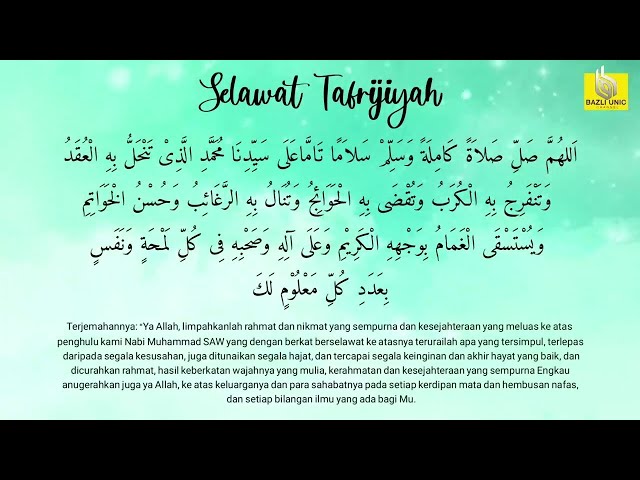 Selawat Tafrijiyah
BAZLI UNIC
CHANNEL
اَللهُمَّ صَلِّ صَلاَةً كَامِلَةً وَسَلِّمْ سَلاَمًا تَامًّا عَلَى سَيِّدِنَا مُحَمَّدِ الَّذِىْ تَنْحَلُّ بِهِ الْعُقَدُ
وَتَنْفَرِجُ بِهِ الْكُرَبُ وَتُقْضَى بِهِ الْحَوَائِجُ وَتُنَالُ بِهِ الرَّغَائِبُ وَحُسْنُ الْخَوَاتِمِ
وَيُسْتَسْقَى الْغَمَامُ بِوَجْهِهِ الْكَرِيْمِ وَعَلَى آلِهِ وَصَحْبِهِ فِى كُلِّ لَمْحَةٍ وَنَفَسٍ
بِعَدَدِ كُلِّ مَعْلُوْمٍ لَكَ
Terjemahannya: “Ya Allah, limpahkanlah rahmat dan nikmat yang sempurna dan kesejahteraan yang meluas ke atas
penghulu kami Nabi Muhammad SAW yang dengan berkat berselawat ke atasnya terurailah apa yang tersimpul, terlepas
daripada segala kesusahan, juga ditunaikan segala hajat, dan tercapai segala keinginan dan akhir hayat yang baik, dan
dicurahkan rahmat, hasil keberkatan wajahnya yang mulia, kerahmatan dan kesejahteraan yang sempurna Engkau
anugerahkan juga ya Allah, ke atas keluarganya dan para sahabatnya pada setiap kerdipan mata dan hembusan nafas,
dan setiap bilangan ilmu yang ada bagi Mu.